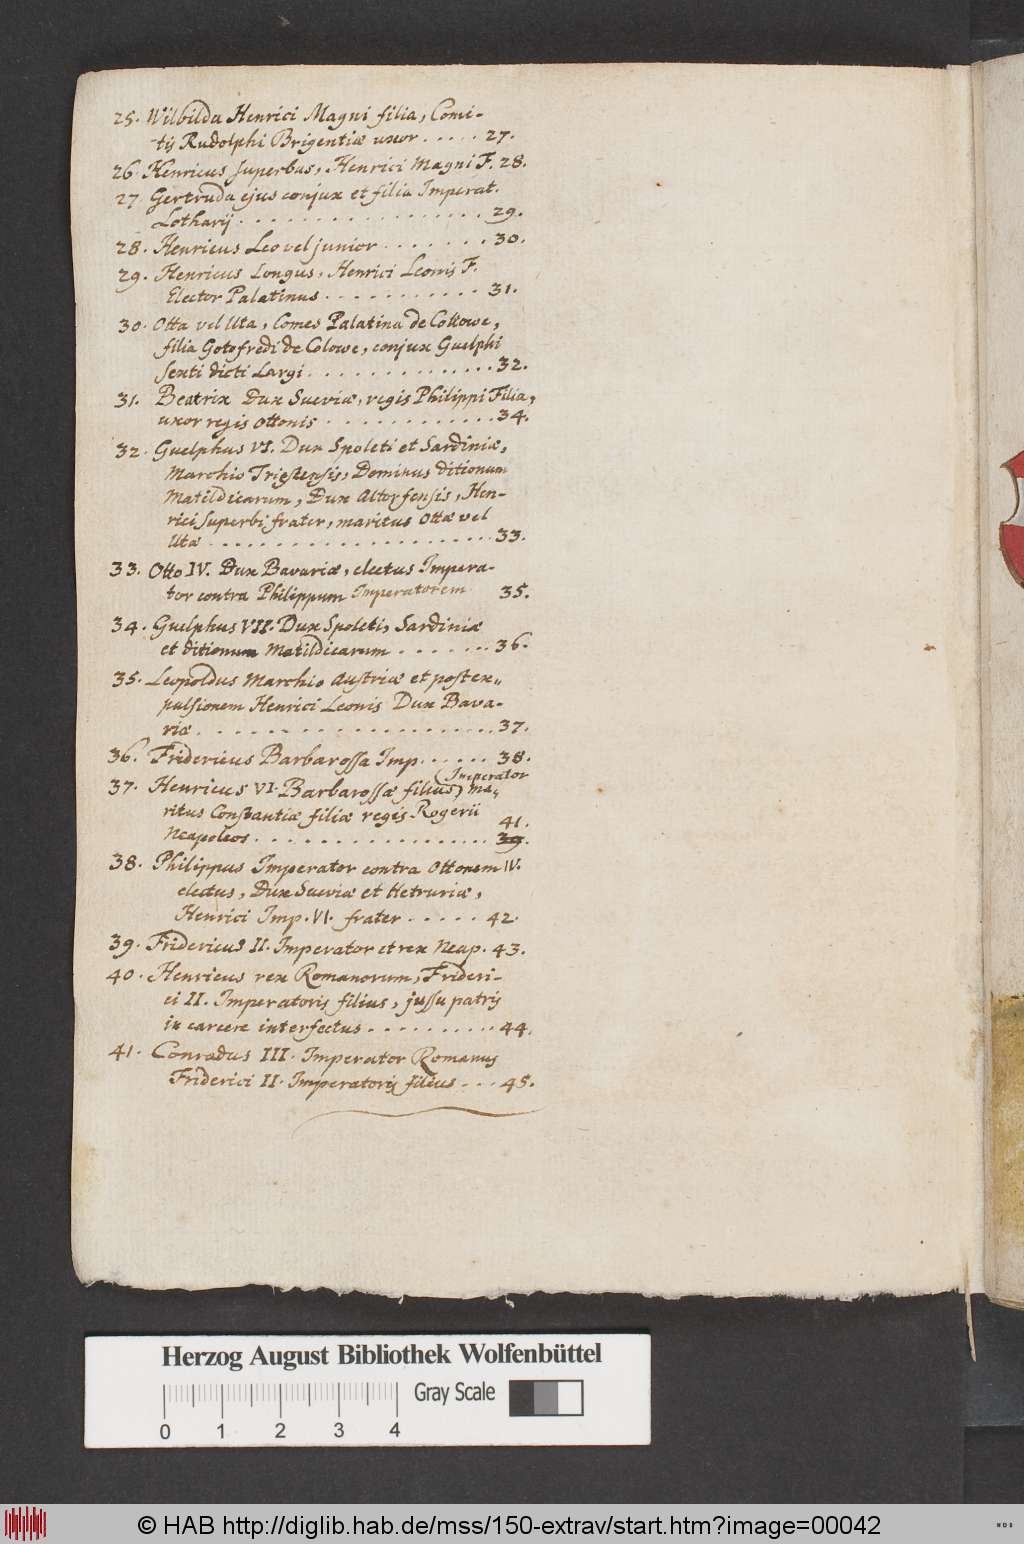 25. Wilbilda Henrici Magni filia, Comi-
tis Rudolphi Brigentiæ uxor . . . . . 27.
26. Henricus Superbus, Henrici Magni F. 28.
27 Gertruda ejus conjux et filia Imperat.
Lotharij . . . . . . . . . . . . . . . . . . 29.
28. Henricus Leo vel junior . . . . . . . 30.
29. Henricus Longus, Henrici Leonis F.
Elector Palatinus . . . . . . . . . . . . 31.
30. Otta vel Uta, Comes Palatina de Collowe,
filia Gotofredi de Colowe, conjux Guelphi
sexti dicti Largi . . . . . . . . . . . . . . 32.
31. Beatrix Dux Sueviæ, regis Philippi Filia,
uxor regis Ottonis . . . . . . . . . . . . 34.
32. Guelphus VI. Dux Spoleti et Sardiniæ,
Marchio Triestensis, Dominus ditionum
Matildicarum, Dux Altorfensis, Hen-
rici Superbi frater, maritus Ottæ vel
Utæ . . . . . . . . . . . . . . . . . . . . . 33.
33. Otto IV. Dux Bavariæ, electus Impera-
tor contra Philippum Imperatorem 35.
34. Guelphus VII. Dux Spoleti, Sardiniæ
et ditionum Matildicarum . . . . . . . 36.
35. Leopoldus Marchio Austriæ et post ex-
pulsionem Henrici Leonis Dux Bava-
riæ . . . . . . . . . . . . . . . . . . . . . . 37.
36. Fridericus Barbarossa Imp. . . . . . 38.
(Imperator
37. Henricus VI. Barbarossæ filius) ma-
ritus Constantiæ filiæ regis Rogerii
41.
Neapoleos . . . . . . . . . . . . . . . . . . 39.
38. Philippus Imperator contra Ottonem IV.
electus, Dux Sueviæ et Hetruriæ,
Henrici Imp. VI. frater . . . . . 42.
39. Fridericus II. Imperator et rex Neap. 43.
40. Henricus rex Romanorum, Frideri-
ci II. Imperatoris filius, jussu patris
in carcere interfectus . . . . . . . . . . 44.
41. Conradus III. Imperator Romanus
Friderici II. Imperatoris filius . . . 45.
Herzog August Bibliothek Wolfenbüttel
Gray Scale
0 1 2 3 4
© HAB http://diglib.hab.de/mss/150-extrav/start.htm?image=00042